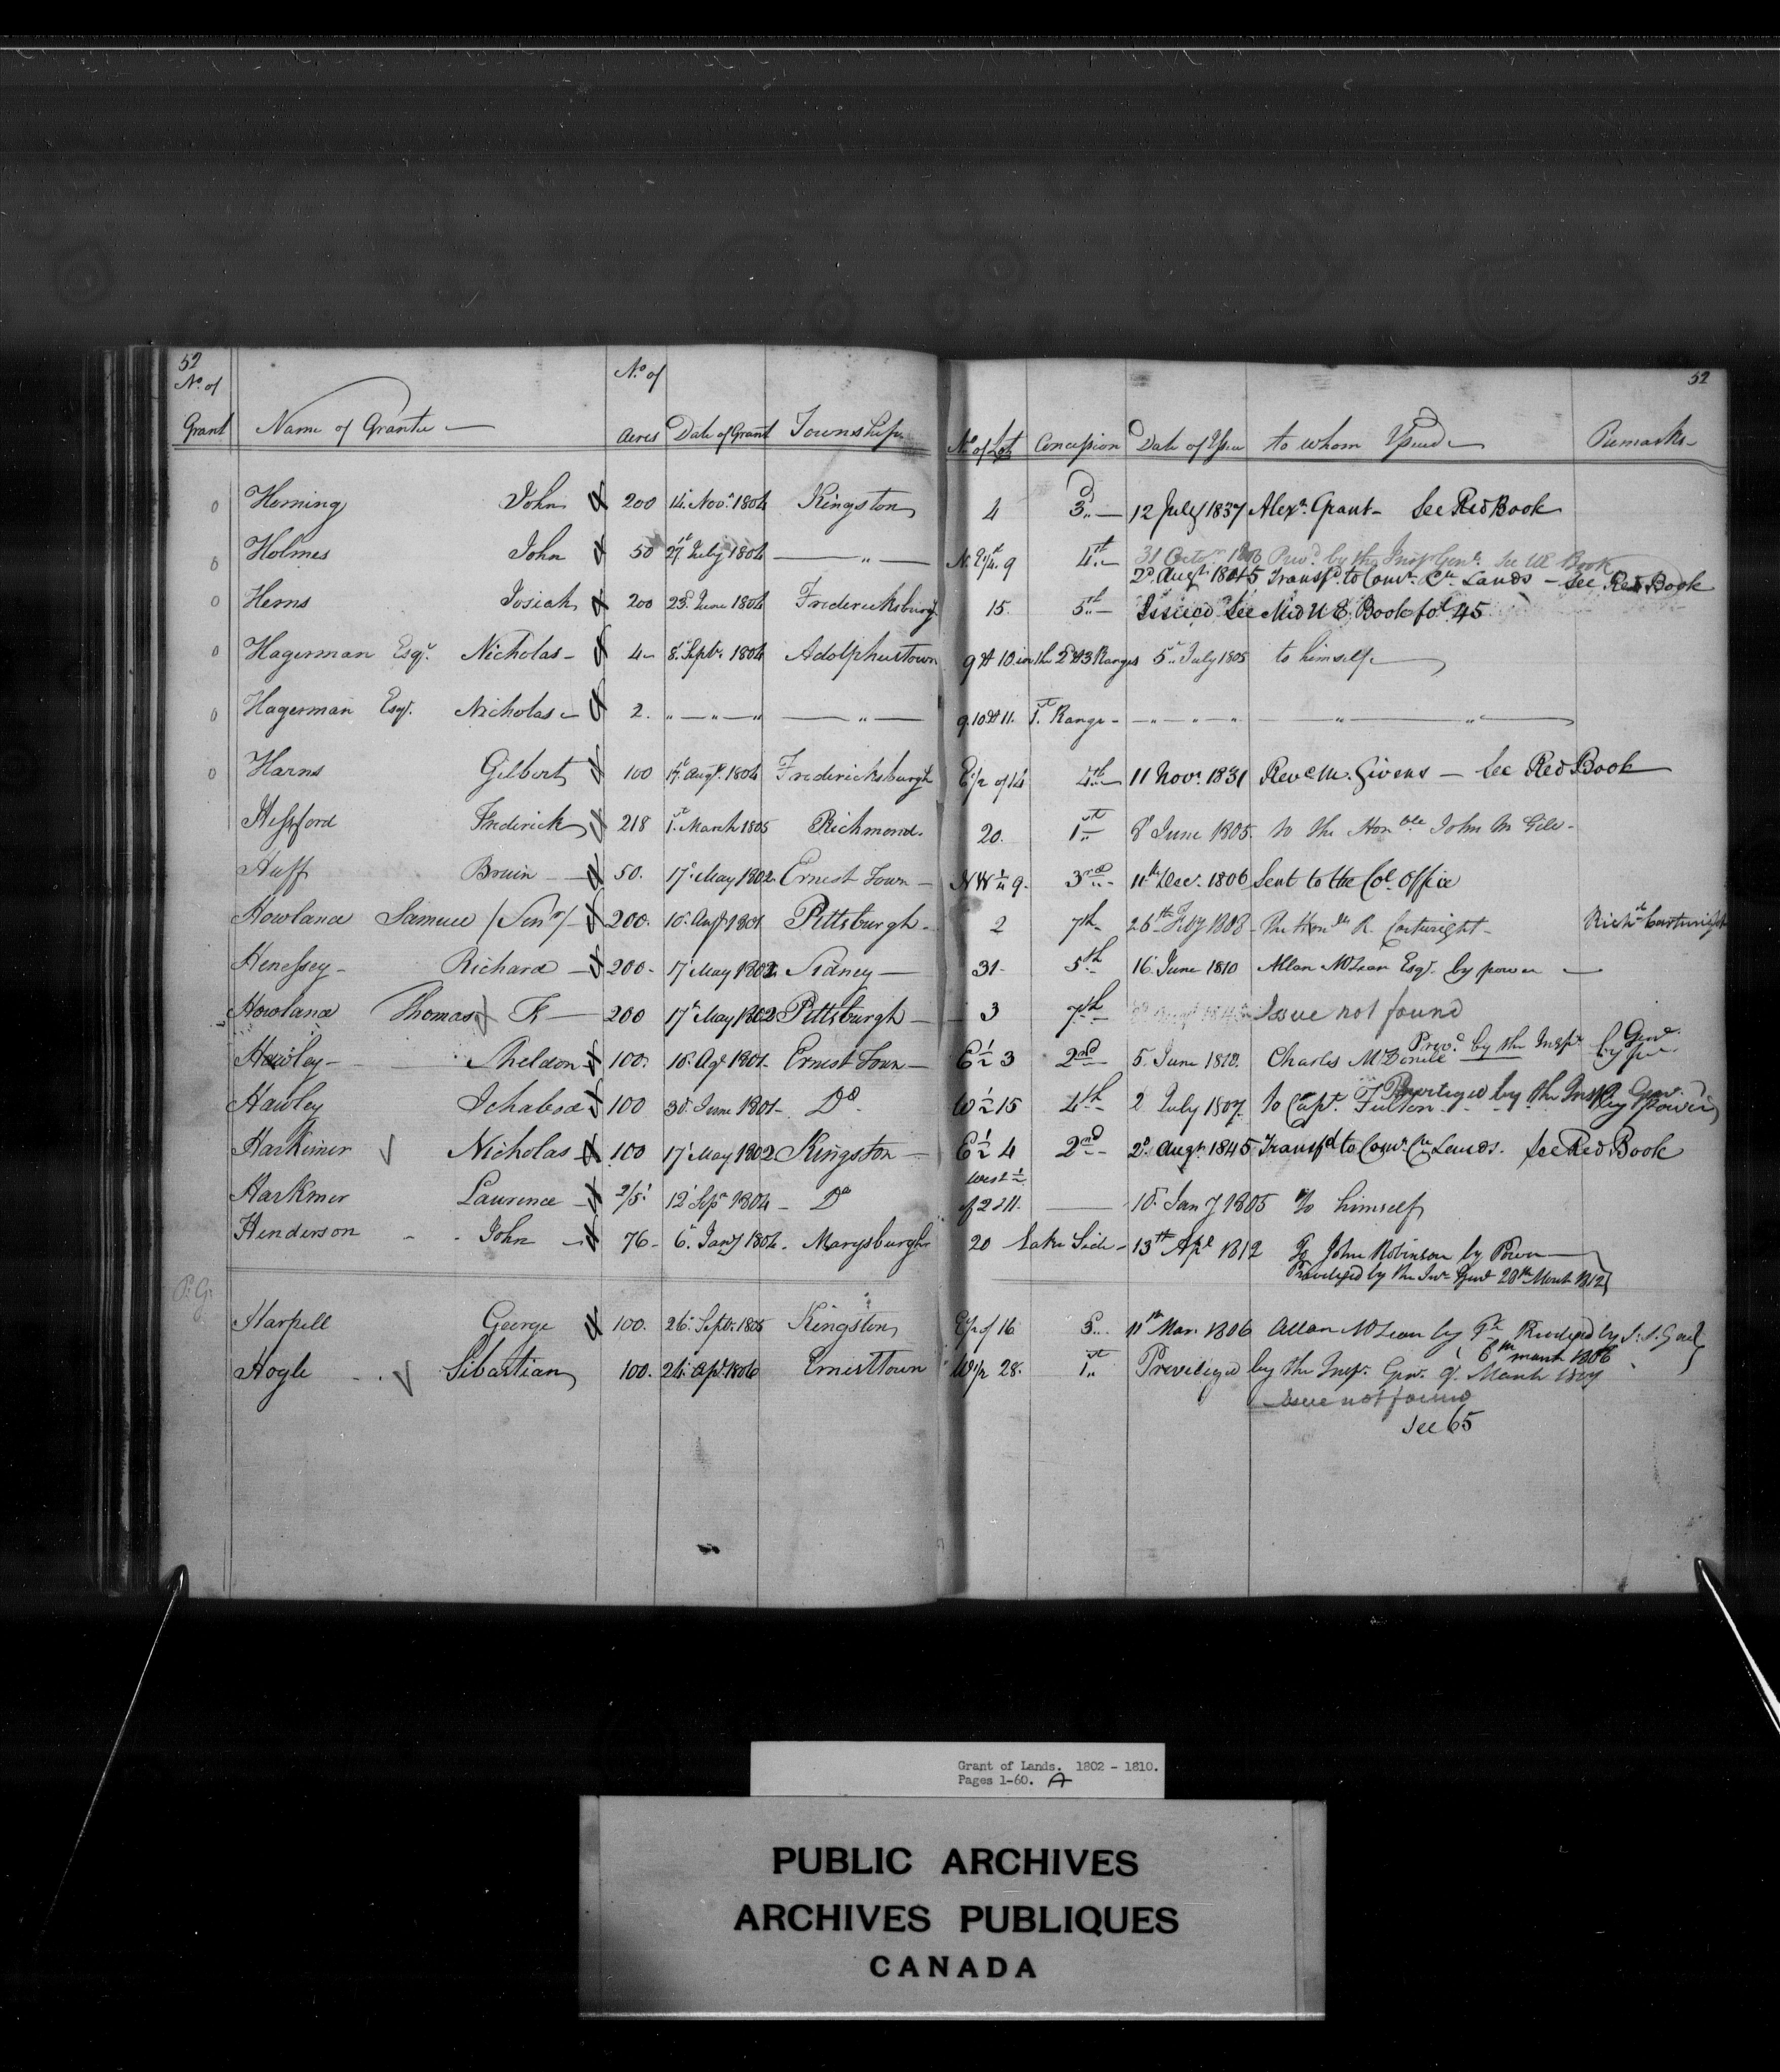 52 52
No. of No. of
Grant Name of Grantee Acres Date of Grant Township No. of Lot Concession Date of Issue to whom Issued Remarks
0 Horning John 200 14 Nov. 1804 Kingston 4 3 12 July 1837 Alexr. Grant - See Red Book
0 Holmes John 50 27 July 1804 — " — N.E 1/4 9 4th 31 Octo by the Insp Genl. See UE Book
2d. Augt. 1845 Transfd. to Comr. Cn. Lands - See Red Book
0 Herns Josiah 200 23 June 1804 Fredericksburg 15. 5th Issued See Mid U E. Book fol 45
0 Hagerman Esqr. Nicholas - 4 - 8 Septr. 1804 Adolphustown 9 & 10 in the 2 & 3 Ranges 5 July 1805 to himself
0 Hagerman Esqr. Nicholas - 2. " — " — " — " — 9. 10 & 11. 1st. Range - — " — " — " — " —
0 Harns Gilbert 100 17 Augt. 1804 Fredericksburgh E 1/2 of 14 4th 11 Novr. 1831 Revd. M. Givens — See Red Book
Frederick 218 1st. March 1805 Richmond. 20. 1st 8 June 1805. to the Honble John M Gill -
Huff Bruin 50. 17 May 1802 Ernest Town - N W 1/4 9. 3rd 11th Decr. 1806 Sent to the Col. Office
Howland Samuel (Senr) 200. 10 Augt 1801 Pittsburgh - 2 7th 26th Feby 1808 - The Honble R. Cartwright - Richd. Cartwright
Henessey - Richard 200 - 17 May 1802 Sidney — 31 - 5th 16 June 1810 Allan McLean Esqr. by power —
Howland Thomas F. — 200 17 May 1802 Pittsburgh — 3 7th Issue not found
Hawley - Sheldon 100. 10 Agt 1801 - Ernest Town — E 1/2 3 2nd 5. June 1812. Charles McDonell Prevd. by the Inspr Genl by pr.
Hawley Ichabod 100 30 June 1801 - Do. W 1/2 15 4th 2 July 1807. to Capt. Fulton Priviliged by the Insp. Genl. by Power
Harkimer Nicholas 100 17 May 1802 Kingston — E 1/2 4 2nd 2d. Augt. 1845 Transfd to Comr. Cn Lands. See Red Book
West 1/2
Harkmer Laurence 2/5 12 Sepr 1804 - Do of 2 & 11. — 10 Jany 1805 To himself
Henderson John 76 - 6 Jany 1804. Marysburgh 20 Lake Side - 13th Apl 1812 To John Robinson by Power
Priviliged by the Inr. Genl 28th March 1812
P.G.
Harpell George 100. 26 Septr. 1805 Kingston E 1/2 of 16 5 11th Mar. 1806 Allan McLean by Pr Priviliged by I. Genl
6th March 1806
Hogle Sibastian 100. 24 Apl. 1806 Ernesttown W 1/2 28. 1st Previliged by the Insp. Genl. 9. March 1807
Issue not found
See 65
Grant of Lands. 1802 - 1810.
Pages 1-60. A
PUBLIC ARCHIVES
ARCHIVES PUBLIQUES
CANADA